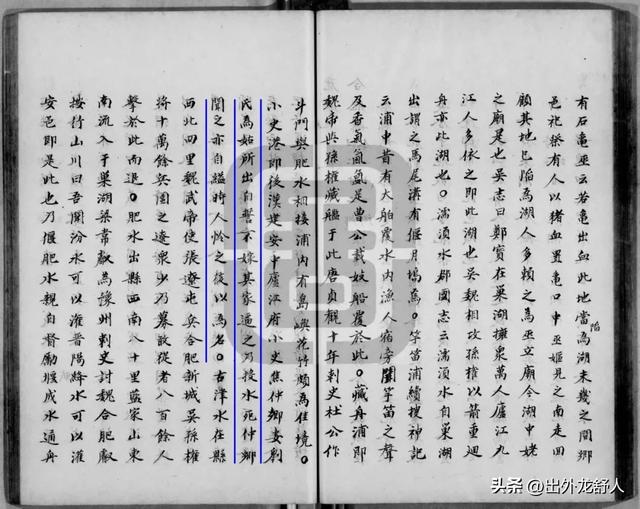 陷
有石龜巫云若龜出血此地當為湖未幾之間鄉
邑祀祭有人以猪血置龜口中巫嫗見之南走回
顧其地已陷為湖人多賴之為巫立廟今湖中姥
之廟是也吳志曰鄭寳在巢湖擁衆萬人廬江九
江人多依之即此湖也吳魏相攻孫權以箭重迴
舟亦此湖也。濡湏水郡國志云濡湏水自巢湖
出謂之馬尾溝有偃月塢焉。筝笛浦續搜神記
云浦中昔有大舶覆水内漁人宿旁聞筝笛之聲
及香氣氤氲是曹公載妓船覆於此。藏舟浦即
魏帝與孫權藏艦于此唐貞觀十年刺史杜公作
斗門與肥水相接浦内有島嶼花竹頗為佳境。
小史港即後漢建安中廬江府小史焦仲卿妻劉
氏為姑所出自誓不嫁其家逼之乃投水死仲卿
聞之亦自縊時人怜之後以為名。古津水在縣
西北四里魏武帝使張遼屯兵合肥新城吳孫權
將十萬餘兵圍之遼衆少乃募敢從者八百餘人
擊於此而退。肥水出縣西南八十里藍家山東
南流入于巢湖梁常獻為豫州刺史討魏合肥嚴
按行山川曰吾聞汾水可以灌晋陽絳水可以灌
安邑即是此也乃堰肥水親自督勵堰成水通舟
头条@出外龙舒人